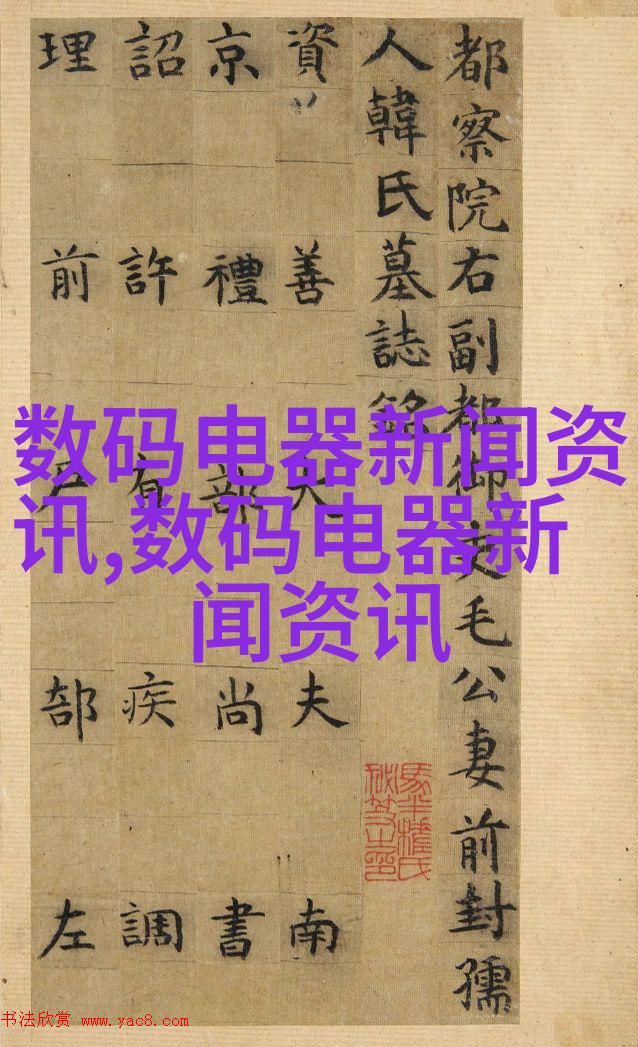 都察院右副都御史毛公妻前封孺
人韓氏墓誌銘
資善大夫南
京禮部尚書
詔許有疾調
理前戶部左
数码电器新闻资
讯,数码电器新
闻资讯
书法欣赏 www.yac8.com